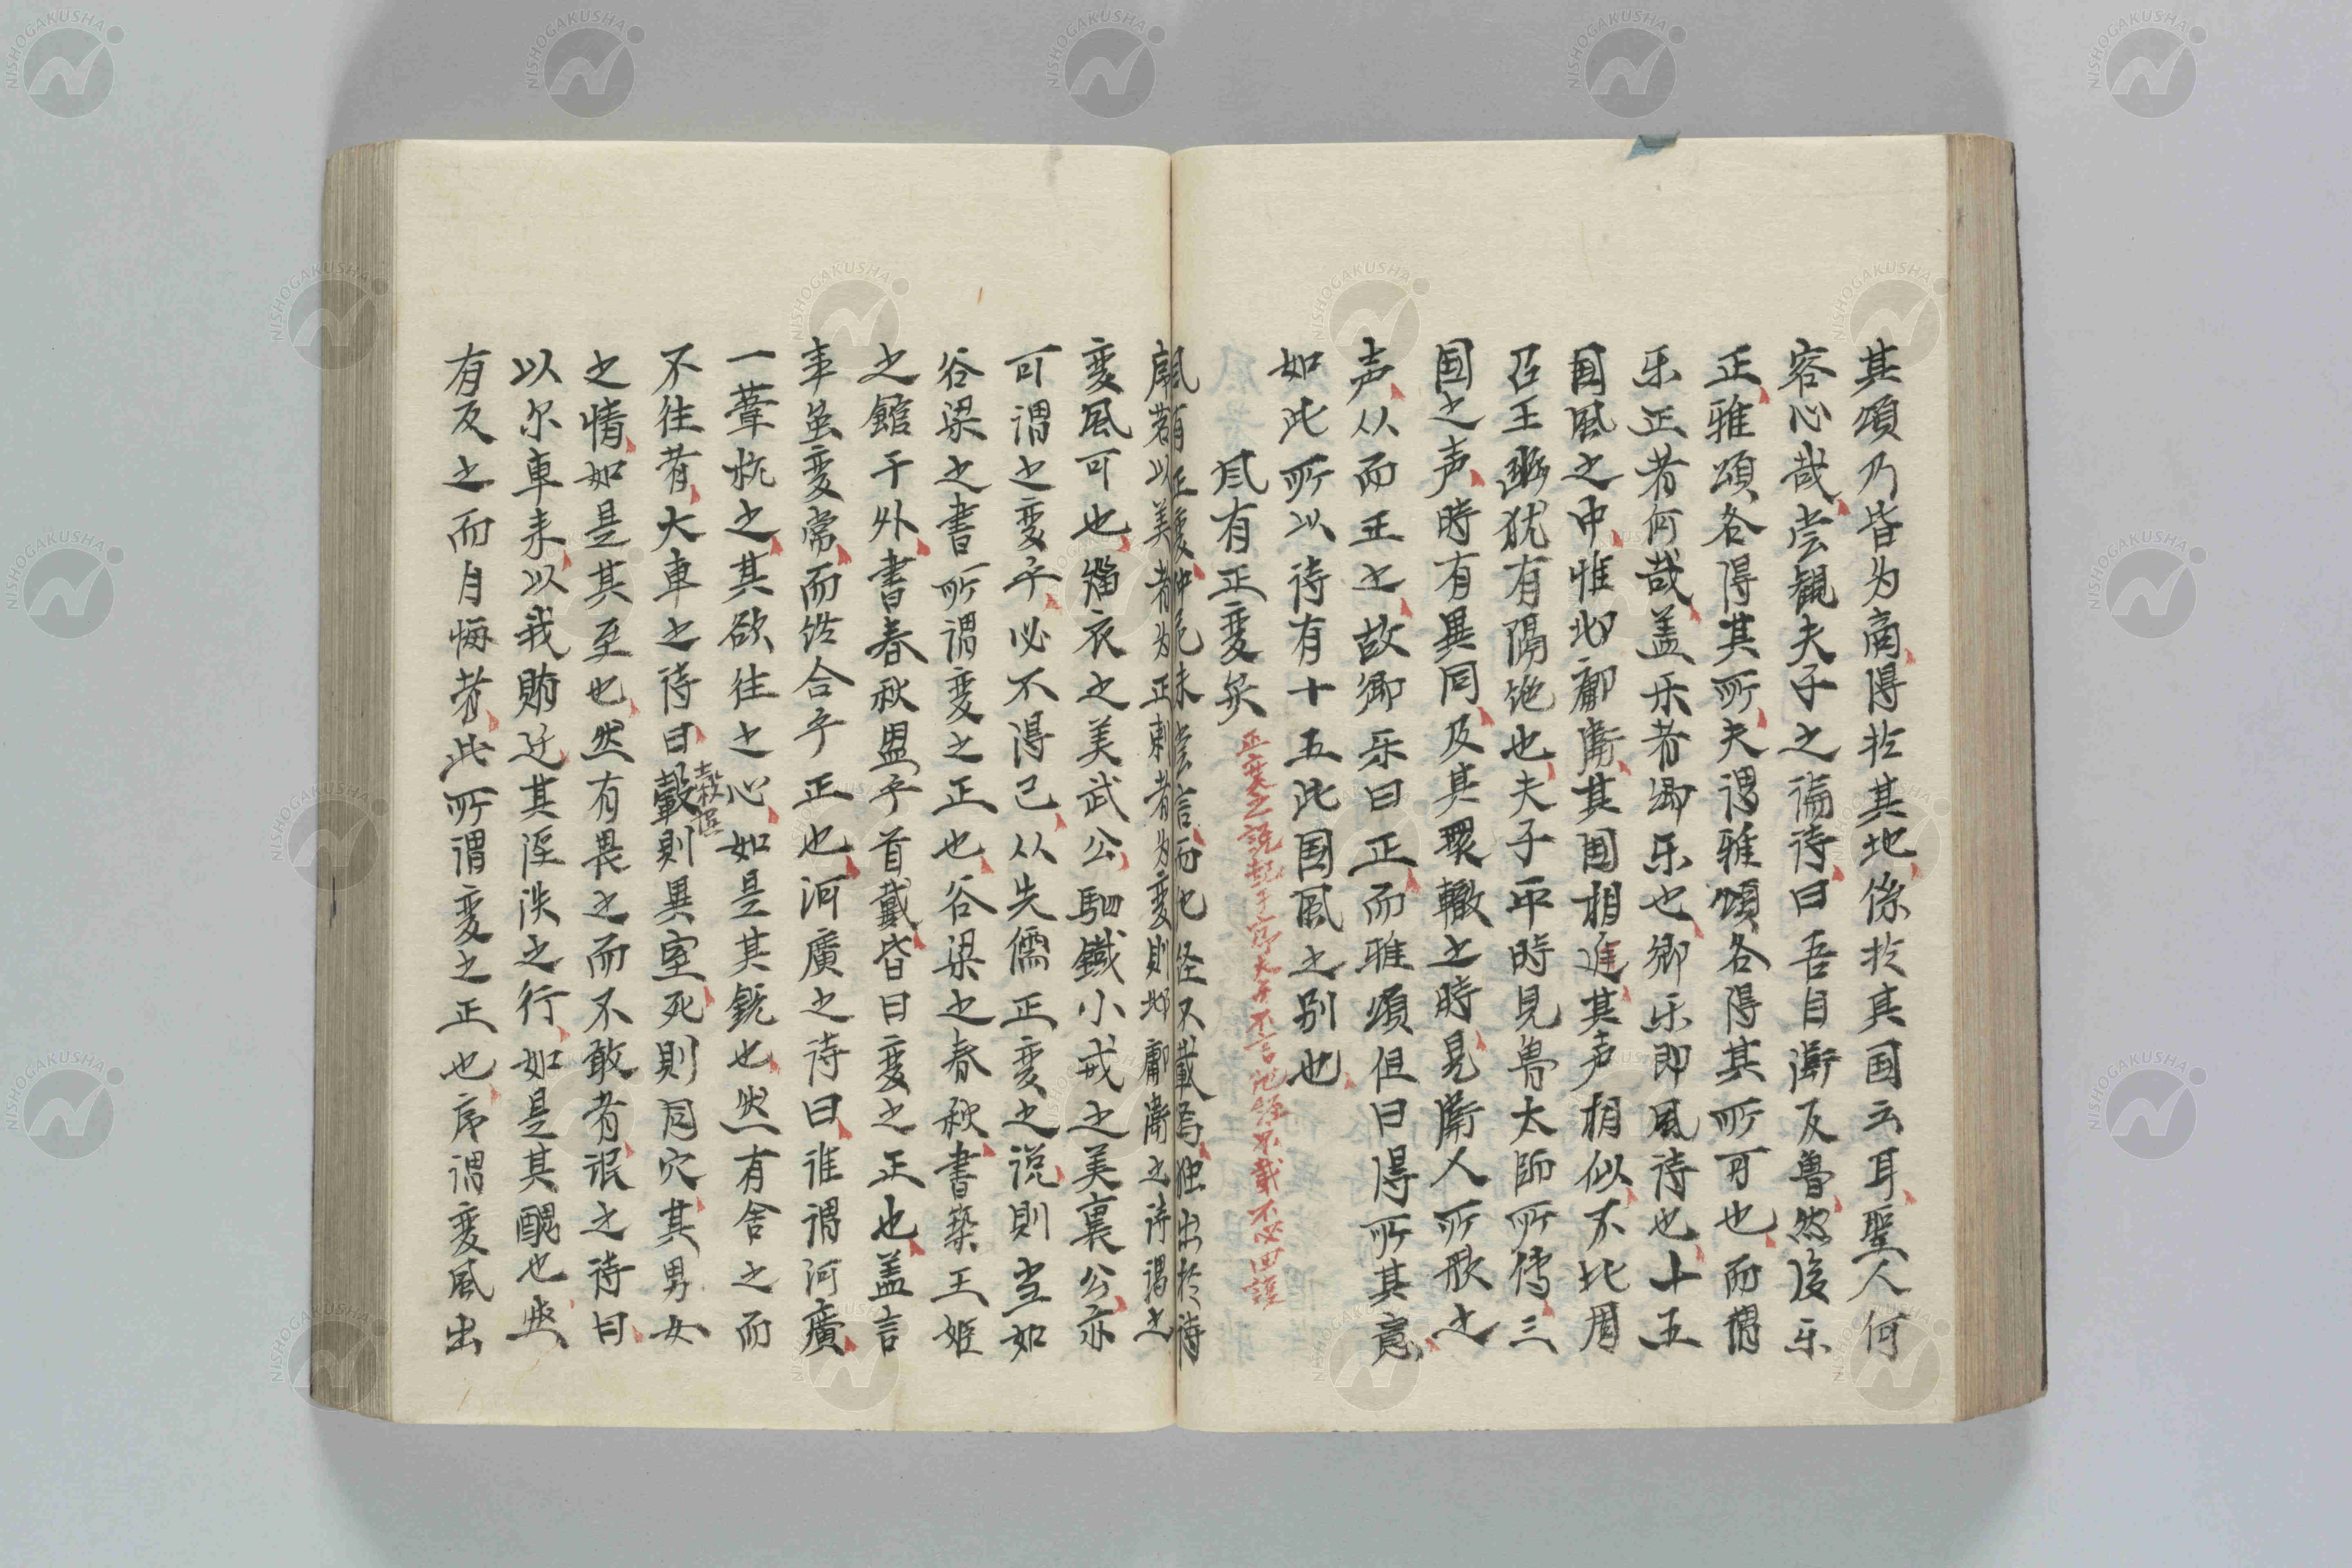 其頌乃皆为商得於其地係於其国云耳聖人何
容心哉尝観夫子之論诗曰吾自衛反魯然後乐
正雅頌各得其所夫谓雅頌各得其所可也而谓
乐正者何哉盖乐者鄉乐也鄉乐即風诗也十五
国風之中惟邶鄘衛其国相連其声相似不比周
召王豳犹有隔绝也夫子平時見魯太師所傳三
国之声時有異同及其環轍之時見衛人所歌之
声从而正之故鄉乐曰正而雅頌但曰得所其意
如此所以诗有十五此国風之别也
風有正變矣
正変之説起于序大子不言他経不載不必回護
風有正變仲尼未尝言而他经不載焉独出於诗
序若以美者为正刺者为变則邶鄘衛之诗谓之
変風可也緇衣之美武公駟鐵小戎之美襄公亦
可谓之变乎必不得已从先儒正变之说則当如
谷梁之書所谓変之正也谷梁之春秋書築王姬
之館于外書春秋盟于首戴皆曰变之正也盖言
事虽变常而终合乎正也河廣之诗曰谁谓河廣
一葦杭之其欲往之心如是其鋭也然有舍之而
不往者大車之诗曰轂則異室死則同穴其男女
穀误
之情如是其至也然有畏之而不敢者氓之诗曰
以尔車来以我賄迁其淫泆之行如是其醜也然
有反之而自悔者此所谓变之正也序谓变風出